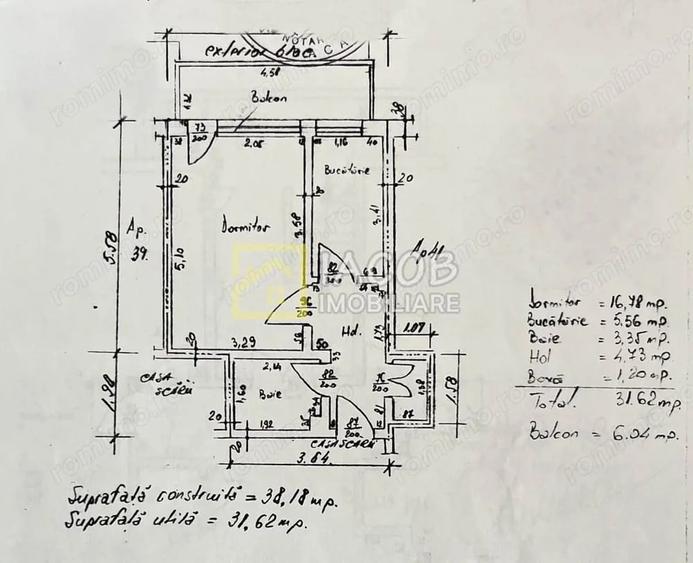 NOTAR
exterior bloc
4.58
Balcon
1.32
38
73
200
2.08
1,16
40
Bucătărie
20
20
Ap.
39.
5.58
5,10
Dormitor
3.58
3,41
Ap 41
82
200
96
200
Hol.
3,29
50
1.07
20
CASA
SCĂRII
1.98
2,14
82
200
1,60
Baie
1.58
87
20
1,92
87
200
CASA SCĂRII
20
3.64
Dormitor = 16,78 mp.
Bucătărie = 5,56 mp.
Baie = 3,35 mp.
Hol = 4,73 mp.
Boxă = 1,20 mp.
Total. 31.62 mp.
Balcon = 6.04 mp.
Suprafață construită = 38,18 mp.
Suprafață utilă = 31,62 mp.
IACOB
IMOBILIARE
romimo.ro